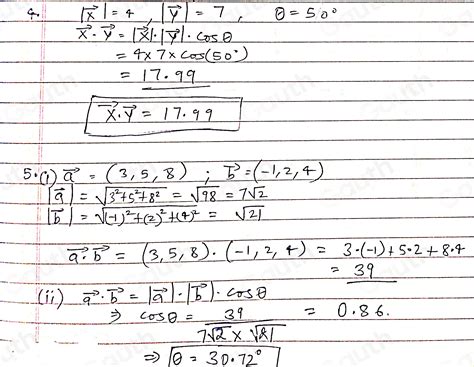 4. |x⃗| = 4 , |y⃗| = 7 , θ = 50°
x⃗ · y⃗ = |x⃗|·|y⃗| · cosθ
= 4×7×cos(50°)
= 17.99
x⃗·y⃗ = 17.99
5.(i) a⃗ = (3, 5, 8) ; b⃗ = (-1, 2, 4)
|a⃗| = √3²+5²+8² = √98 = 7√2
|b⃗| = √(-1)²+(2)²+(4)² = √21
a⃗·b⃗ = (3, 5, 8) · (-1, 2, 4) = 3·(-1)+5·2+8·4
= 39
(ii) a⃗·b⃗ = |a⃗|·|b⃗| · cosθ
⇒ cosθ = 39 / 7√2 × √21 = 0.86.
⇒ θ = 30.72°